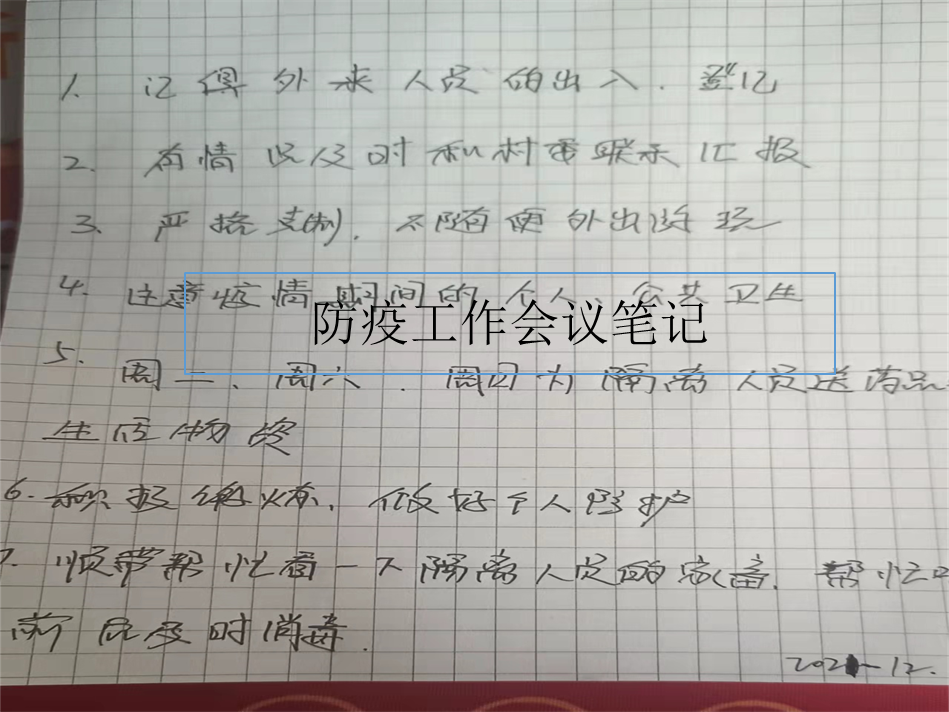 1. 记得外来人员的出入.登记
2. 有情况及时和村委联系汇报
3. 严格支制,不随便外出
4. 注意疫情时间的个人、公共卫生
防疫工作会议笔记
5. 周二、周六、周四为隔离人员送药品
生活物资
6. 积极锻炼,做好个人防护
7. 顺带帮忙看一下隔离人员的家畜.帮忙
前后及时消毒.
2021-12.